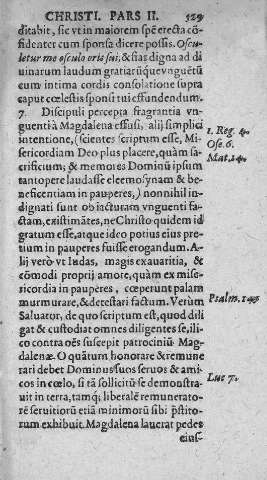 CHRISTI. PARS II. 529
ditabit, sic vt in maiorem spē erecta cō-
fidenter cum sponsa dicere possis. Oscu-
letur me osculo oris sui; & sias digna ad di
uinarum laudum gratiarūque vnguētū
cum intima cordis consolatione supra
caput cœlestis sponsi tui effundendum.
7. Discipuli percepta fragrantia vn-
guenti à Magdalena effusi, alij simplici
intentione, (scientes scriptum esse, Mi-
sericordiam Deo plus placere, quàm sa-
crificium; & memores Dominū ipsum
tantopere laudasse eleemosynam & be-
neficentiam in pauperes,) nonnihil in-
dignati sunt ob iacturam vnguenti fa-
ctam, existimātes, ne Christo quidem id
gratum esse, atque ideo potius eius pre-
tium in pauperes fuisse erogandum. A-
lij verò vt Iudas, magis ex auaritia, &
cōmodi proprij amore, quàm ex mise-
ricordia in pauperes, cœperunt palam
murmurare, & detestari factum. Verùm
Saluator, de quo scriptum est, quod dili
gat & custodiat omnes diligentes se, ili-
co contra oēs suscepit patrociniū Mag-
dalenæ. O quātum honorare & remune
rari debet Dominus suos seruos & ami-
cos in cœlo, si tā sollicitū se demonstra-
uit in terra, tamq; liberalē remunerato-
rē seruitiorū etiā minimorū sibi p̄stito-
rum exhibuit. Magdalena lauerat pedes
eius-
1. Reg. 4.
Ose. 6.
Mat. 14.
Psalm. 145
Luc 7.